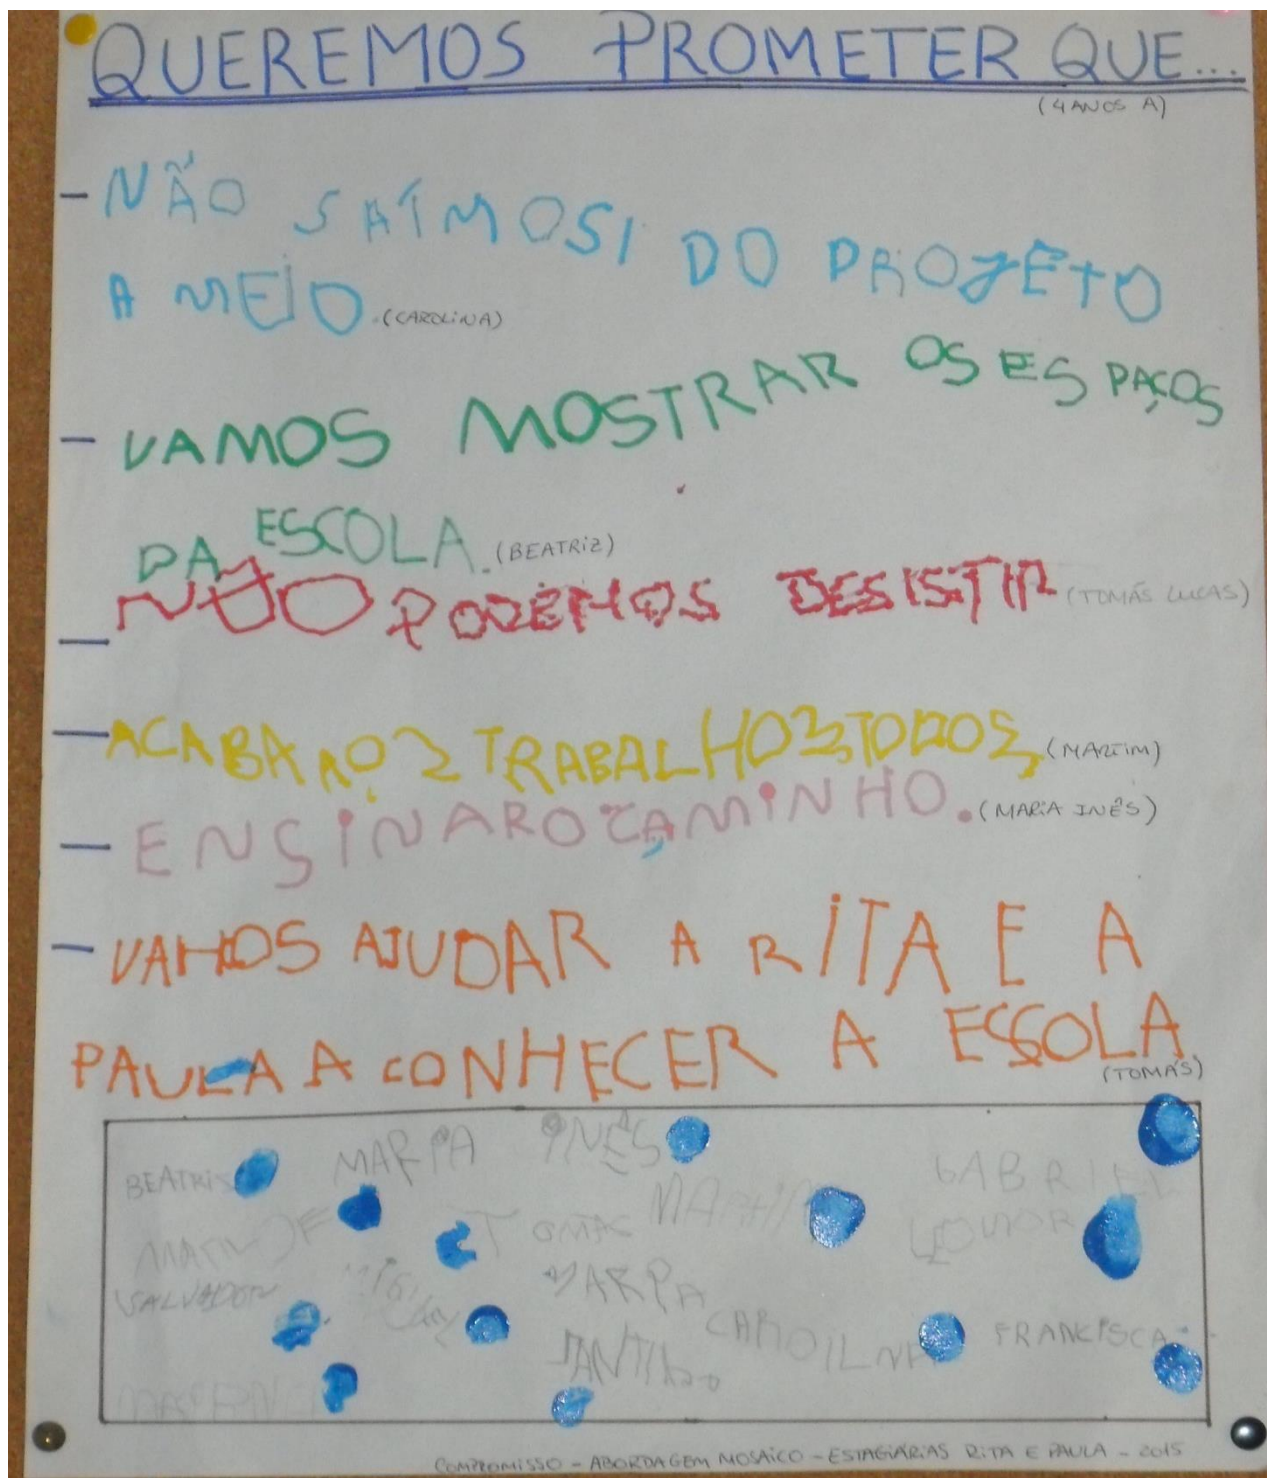 QUEREMOS PROMETER QUE...
(4 ANOS A)
- NÃO SAÍMOSI DO PROJETO
A MEIO. (CAROLINA)
- VAMOS MOSTRAR OS ESPAÇOS
DA ESCOLA. (BEATRIZ)
- NÃO PODEMOS DESISTIR (TOMÁS LUCAS)
- ACABAR OS TRABALHOS TODOS. (MARTIM)
- ENSINAR O CAMINHO. (MARIA INÊS)
- VAMOS AJUDAR A RITA E A
PAULA A CONHECER A ESCOLA
(TOMÁS)
BEATRIS MARIA INÊS GABRIEL
TOMAS MARTIM
SALVADOR MARIA
SANTIAGO CAROILNA FRANCISCA
COMPROMISSO - ABORDAGEM MOSAICO - ESTAGIÁRIAS RITA E PAULA - 2015